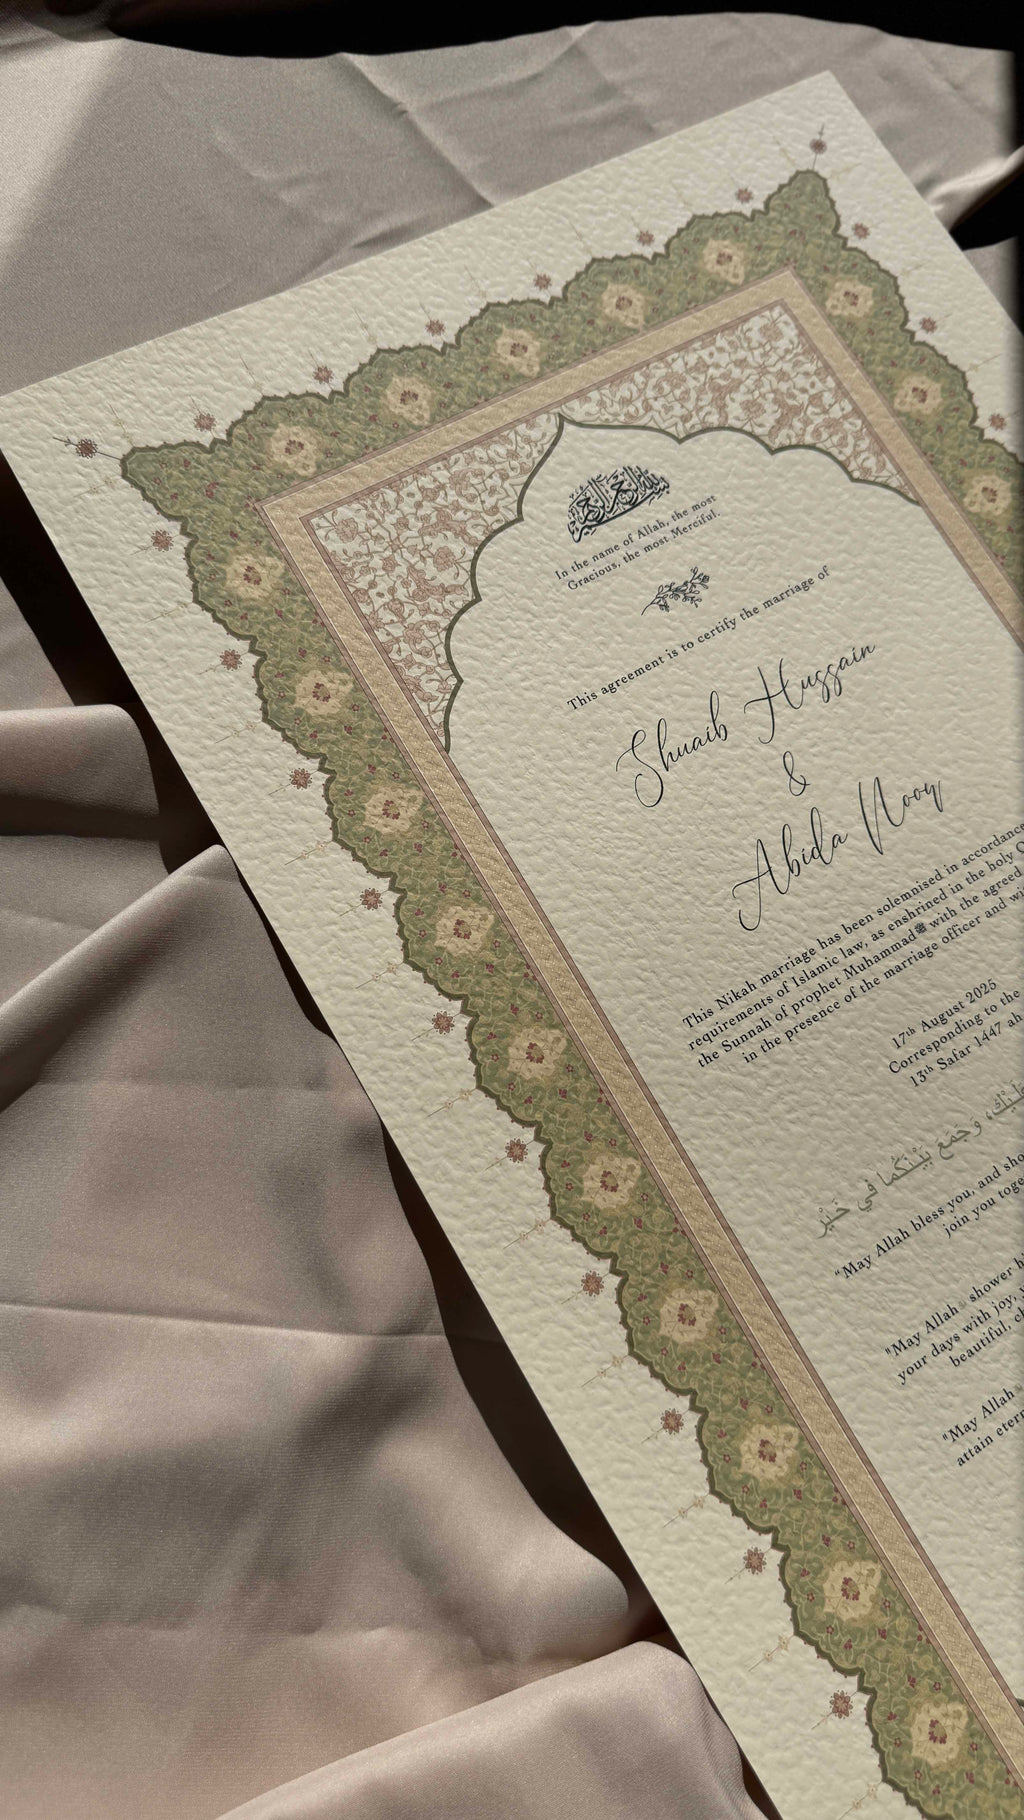 بسم الله الرحمن الرحيم
In the name of Allah, the most
Gracious, the most Merciful.
This agreement is to certify the marriage of
Shuaib Hussain
&
Abida Noor
This Nikah marriage has been solemnised in accordance
requirements of Islamic law, as enshrined in the holy
the Sunnah of prophet Muhammadﷺ with the agreed
in the presence of the marriage officer and
17th August 2025
Corresponding to the
13th Safar 1447 ah
عَلَيْكَ، وَجَمَعَ بَيْنَكُمَا فِي خَيْر
"May Allah bless you, and
join you
"May Allah shower
your days with joy,
beautiful,
"May Allah
attain